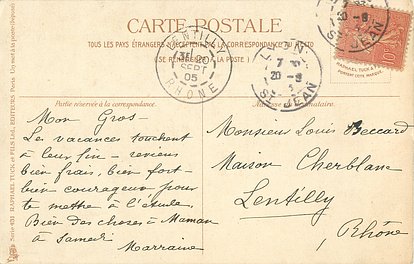 CARTE POSTALE
TOUS LES PAYS ÉTRANGERS
(SE RENSEIGNER
LA POSTE)
LENTILLY
20
SEPT
05
RHÔNE
LYON
7
20-9
ST JEAN
7
20-9
ST JEAN
10
RAPHAEL TUCK & FILS
Partie réservée à la correspondance.
Mon Gros-
Les vacances touchent
à leur fin - reviens
bien frais, bien fort-
bien courageux pour
te mettre à l'étude.
Bien des choses à Maman
à Samedi
Marraine
Monsieur Louis Beccard
Maison Cherblanc
Lentilly
Rhône
Série 853 RAPHAEL TUCK et FILS Ltd, EDITEURS Paris